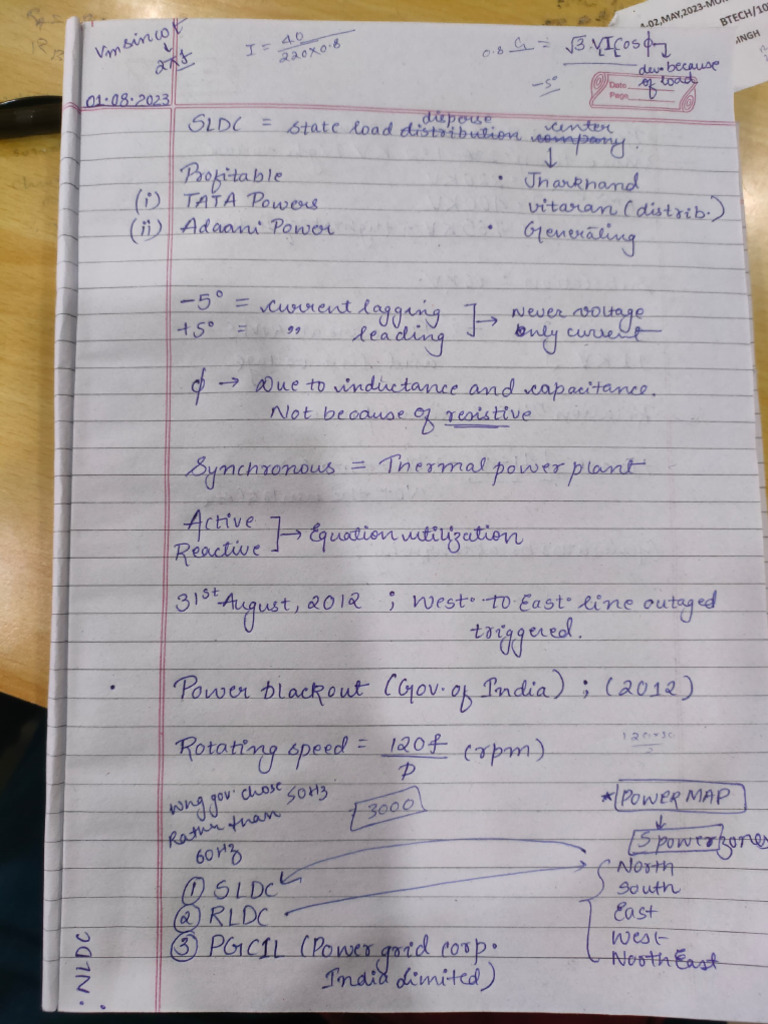 Vm sin ωt
2πf
I = 40
220×0.8
0.8 = √3 VI cos φ
dev. because
of load
-5°
-02, MAY, 2023-MO
BTECH/10
INGH
Date
Page
01.08.2023
disperse center
SLDC = state load distribution company.
Profitable
(i) TATA Powers
(ii) Adaani Power
• Jharkhand
vitaran (distrib.)
• Generating
-5° = current lagging
+5° = " leading
→ Never voltage
only current
φ → Due to inductance and capacitance.
Not because of resistive
Synchronous = Thermal power plant
Active
Reactive
→ Equation utilization
31st August, 2012 ; West to East line outaged
triggered.
• Power blackout (Gov. of India) ; (2012)
Rotating speed = 120f (rpm)
P
why gov. chose 50Hz
Rather than
60Hz
3000
* POWER MAP
5 power zones
North
South
East
West
North East
① SLDC
② RLDC
③ PGCIL (Power grid corp.
India limited)
• NLDC